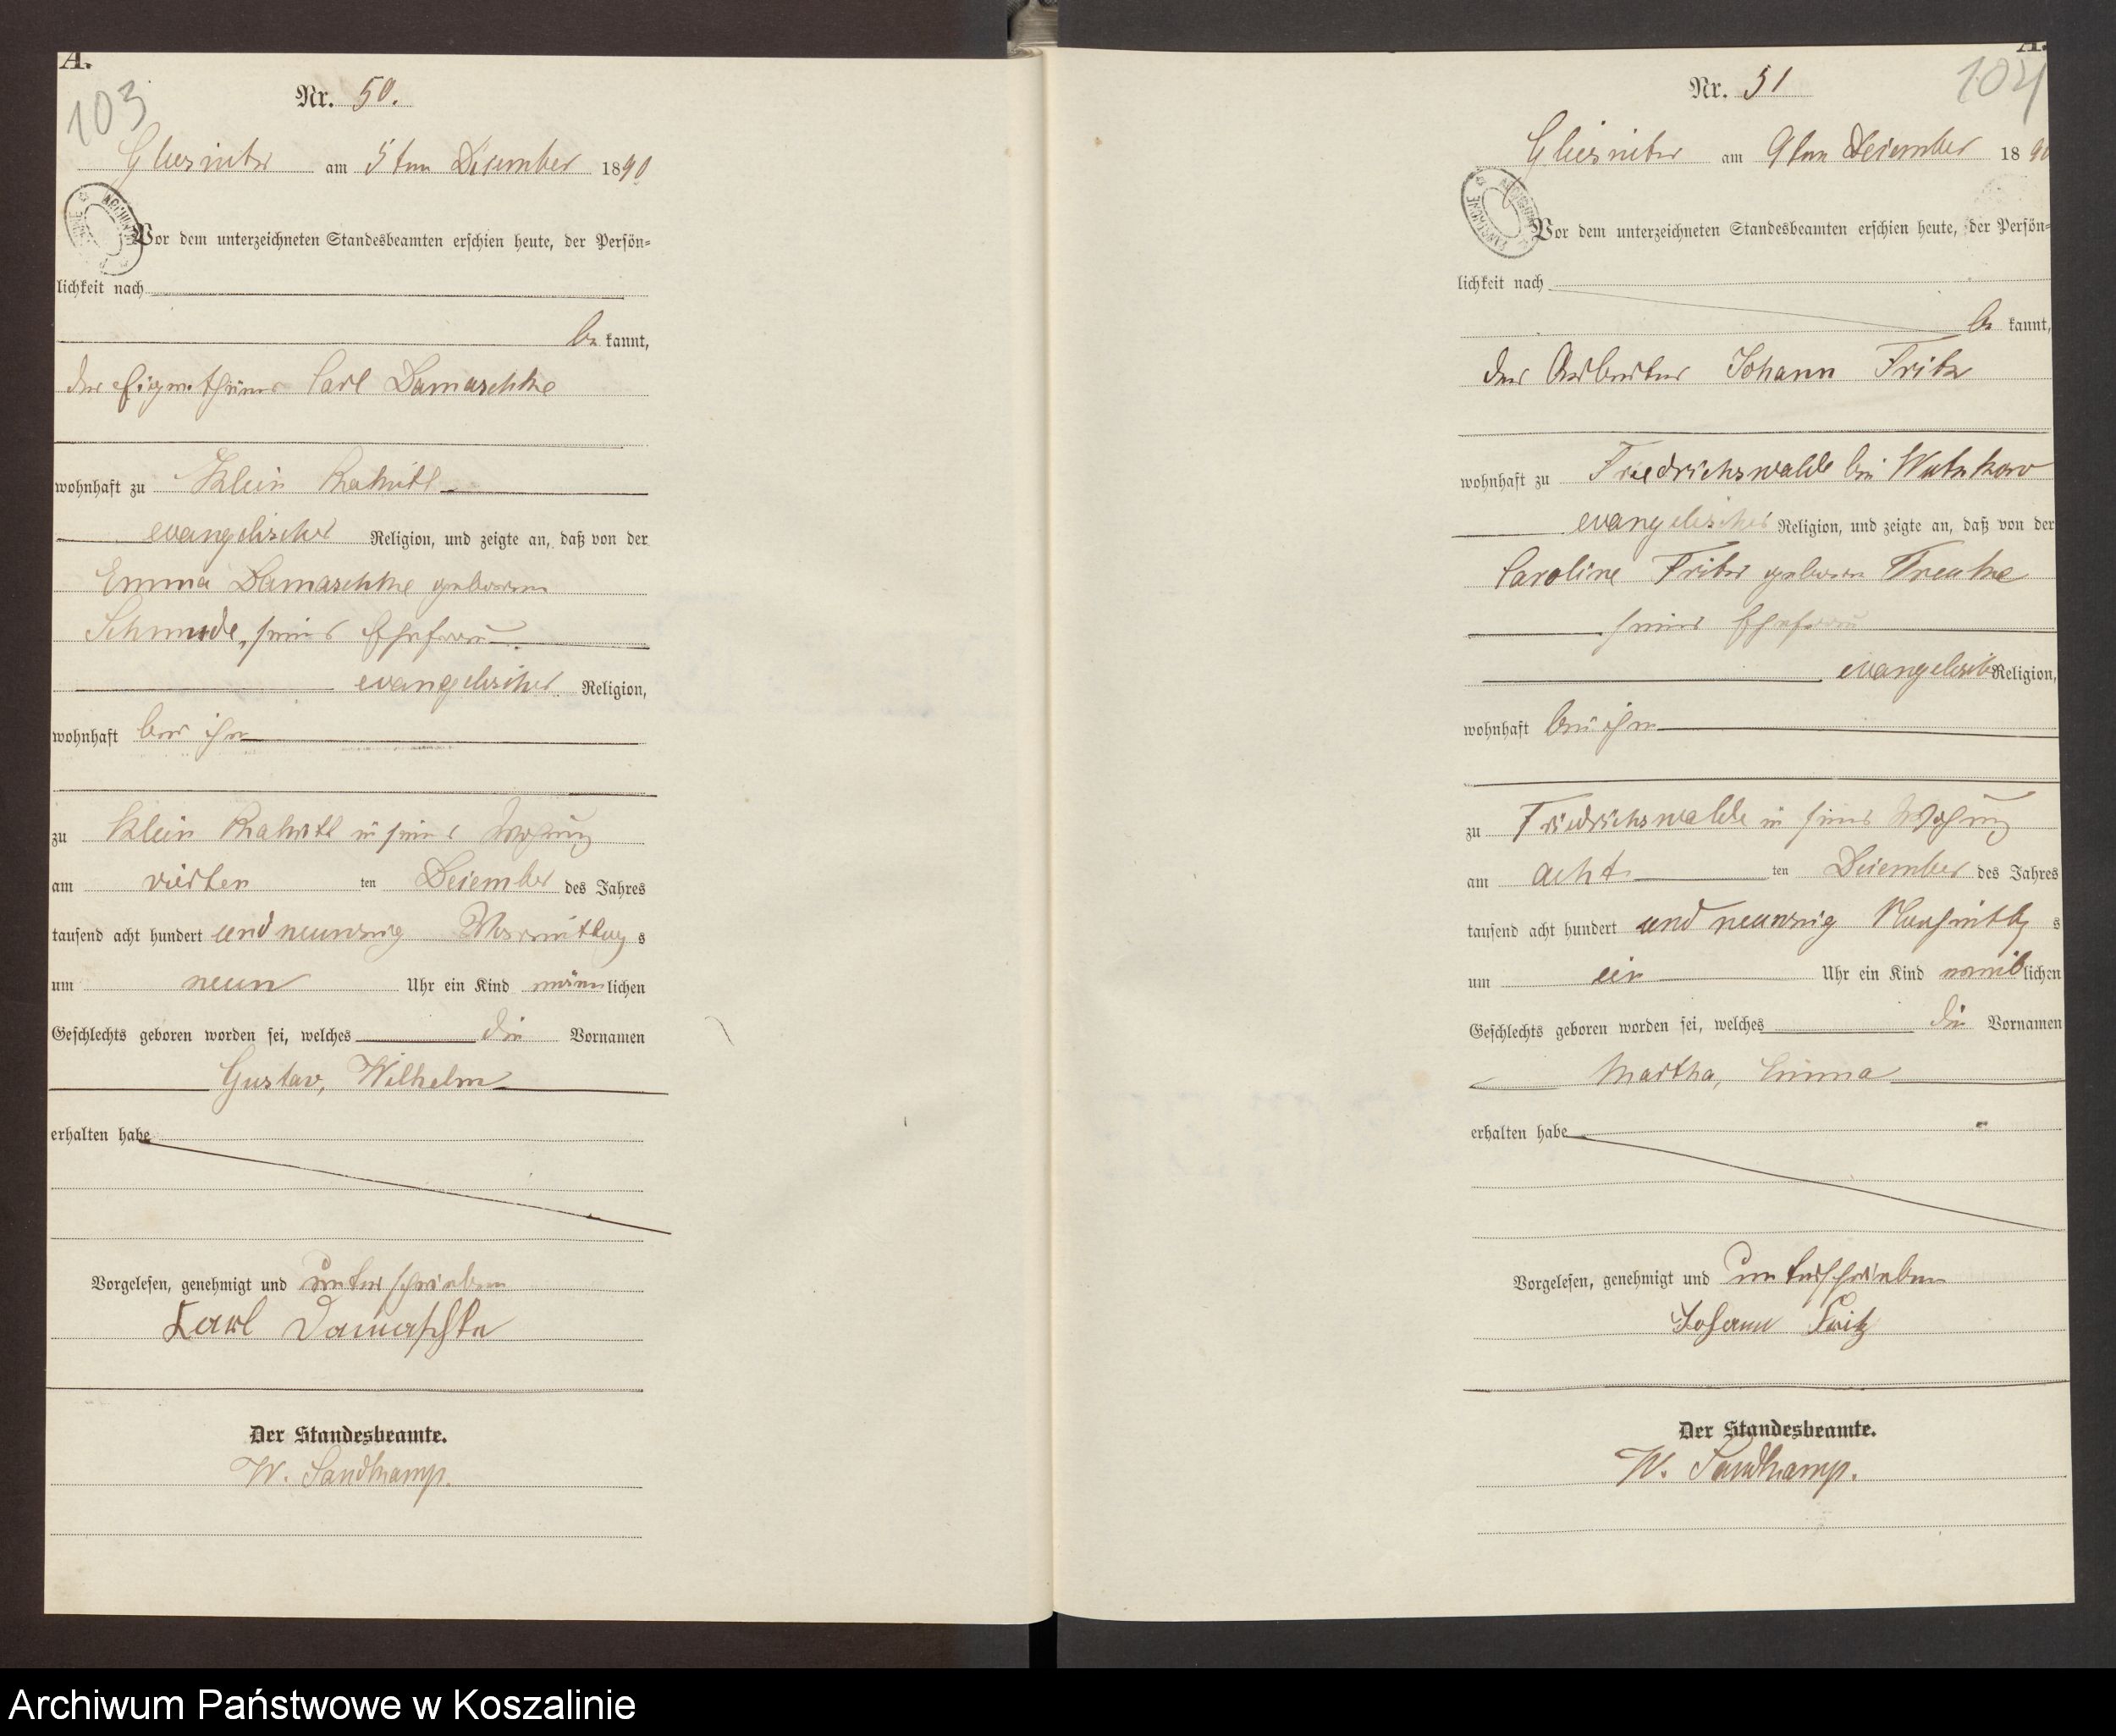 A.
103
Nr. 50.
Gliesnitz am 5ten Dezember 1890
Vor dem unterzeichneten Standesbeamten erschien heute, der Persön-
lichkeit nach
be kannt,
der Eigenthümer Carl Damaschke
wohnhaft zu Klein Rakitt
evangelischer Religion, und zeigte an, daß von der
Emma Damaschke geborene
seiner Ehefrau
evangelischer Religion,
wohnhaft bei ihm
zu Klein Rakitt in seiner Wohnung
am vierten ten Dezember des Jahres
tausend acht hundert und neunzig Vormittag s
um neun Uhr ein Kind männ lichen
Geschlechts geboren worden sei, welches die Vornamen
Gustav, Wilhelm
erhalten habe
Vorgelesen, genehmigt und unterschrieben
Karl Damaschke
Der Standesbeamte.
W. Sandkamp.
A.
104
Nr. 51
Gliesnitz am 9ten Dezember 1890
Vor dem unterzeichneten Standesbeamten erschien heute, der Persön-
lichkeit nach
be kannt,
der Arbeiter Johann Fritz
wohnhaft zu Friedrichswalde bei Wutzkow
evangelischer Religion, und zeigte an, daß von der
Caroline Fritz geborene
seiner Ehefrau
evangelischer Religion,
wohnhaft bei ihm
zu Friedrichswalde in seiner Wohnung
am acht ten Dezember des Jahres
tausend acht hundert und neunzig Nachmittag s
um ein Uhr ein Kind weib lichen
Geschlechts geboren worden sei, welches die Vornamen
Martha, Emma
erhalten habe
Vorgelesen, genehmigt und unterschrieben
Johann Fritz
Der Standesbeamte.
W. Sandkamp.
Archiwum Państwowe w Koszalinie